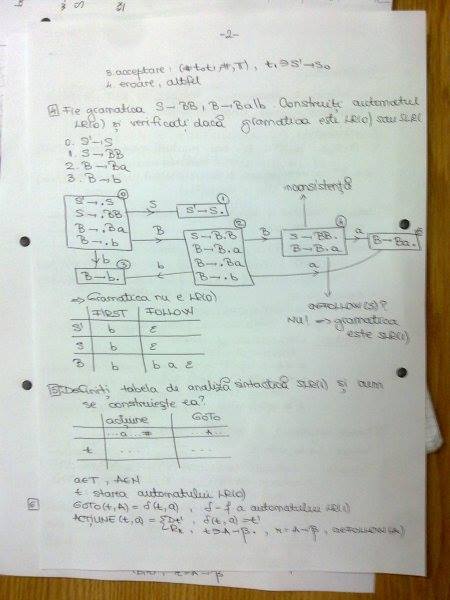 -2-
3. acceptare: (#t0t1, #, π), t1∋S'→S.
4. eroare, altfel
4 Fie gramatica S→BB, B→Ba|b. Construiți automatul
LR(0) și verificați dacă gramatica este LR(0) sau SLR(1)
0. S'→S
1. S→BB
2. B→Ba
3. B→b
inconsistență
0
S'→.S
S→.BB
B→.Ba
B→.b
S
1
S'→S.
B
2
S→B.B
B→B.a
B→.Ba
B→.b
B
4
S→BB.
B→B.a
a
5
B→Ba.
b
3
B→b.
b
a
⇒ Gramatica nu e LR(0)
FIRST FOLLOW
S' b ε
S b ε
B b b a ε
a∈FOLLOW(S)?
NU! ⇒ gramatica
este SLR(1)
5 Definiți tabela de analiză sintactică SLR(1) și cum
se construiește ea?
acțiune GOTO
...a...# ..A..
t ... ...
a∈T, A∈N
t starea automatului LR(0)
6
GOTO(t,A) = δ(t,a), δ-f a automatului LR(1)
ACȚIUNE(t,a) = Dt', δ(t,a)=t'
Rr, t∋A→β., r=A→β, a∈FOLLOW(A)